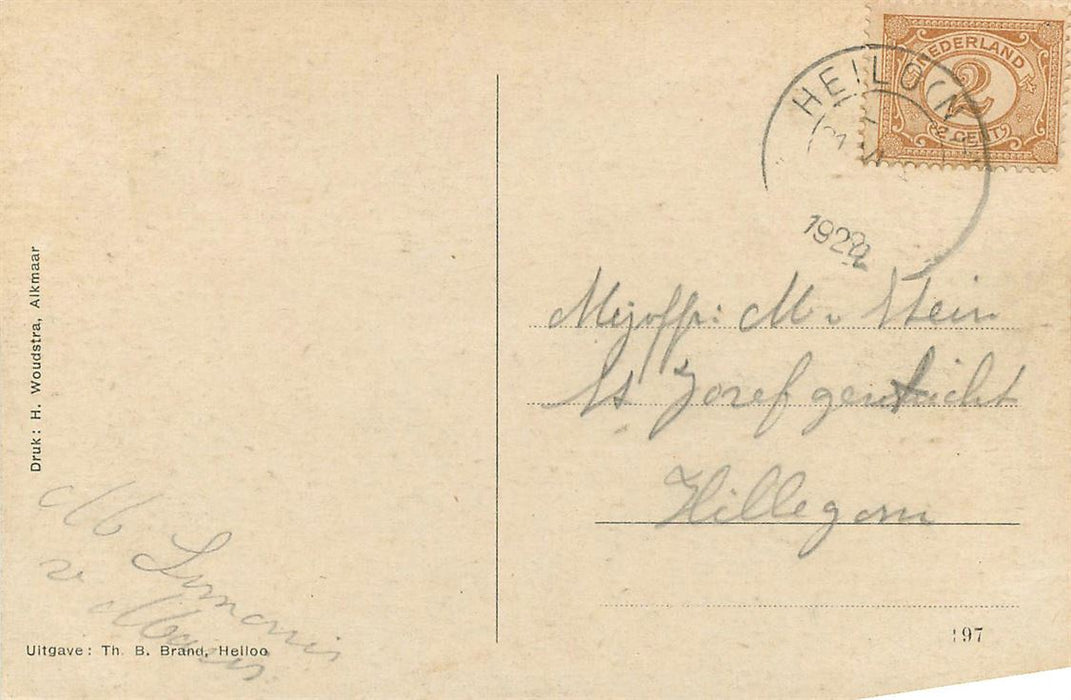 NEDERLAND
2
2 CENT
HEILO (N
1922
Mejoffr: M v Stein
St Jozef gesticht
Hillegom
Druk: H. Woudstra, Alkmaar
M Simonis
v
Uitgave: Th. B. Brand, Heiloo
197